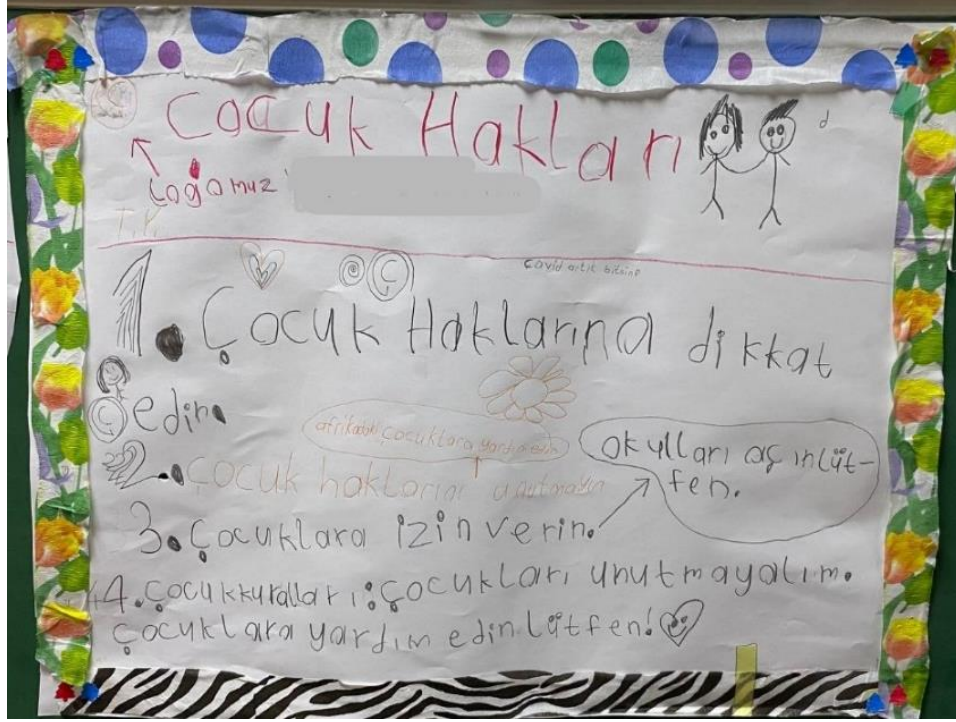 Çocuk Hakları
Logomuz
T.K.
Covid artık bitsin
1. Çocuk Haklarına dikkat
edin.
afrikadaki çocuklara yardım edin
2. çocuk haklarını unutmayın
okulları açın lüt-
fen.
3. Çocuklara izin verin.
4. Çocuk kuralları: Çocukları unutmayalım.
Çocuklara yardım edin lütfen!